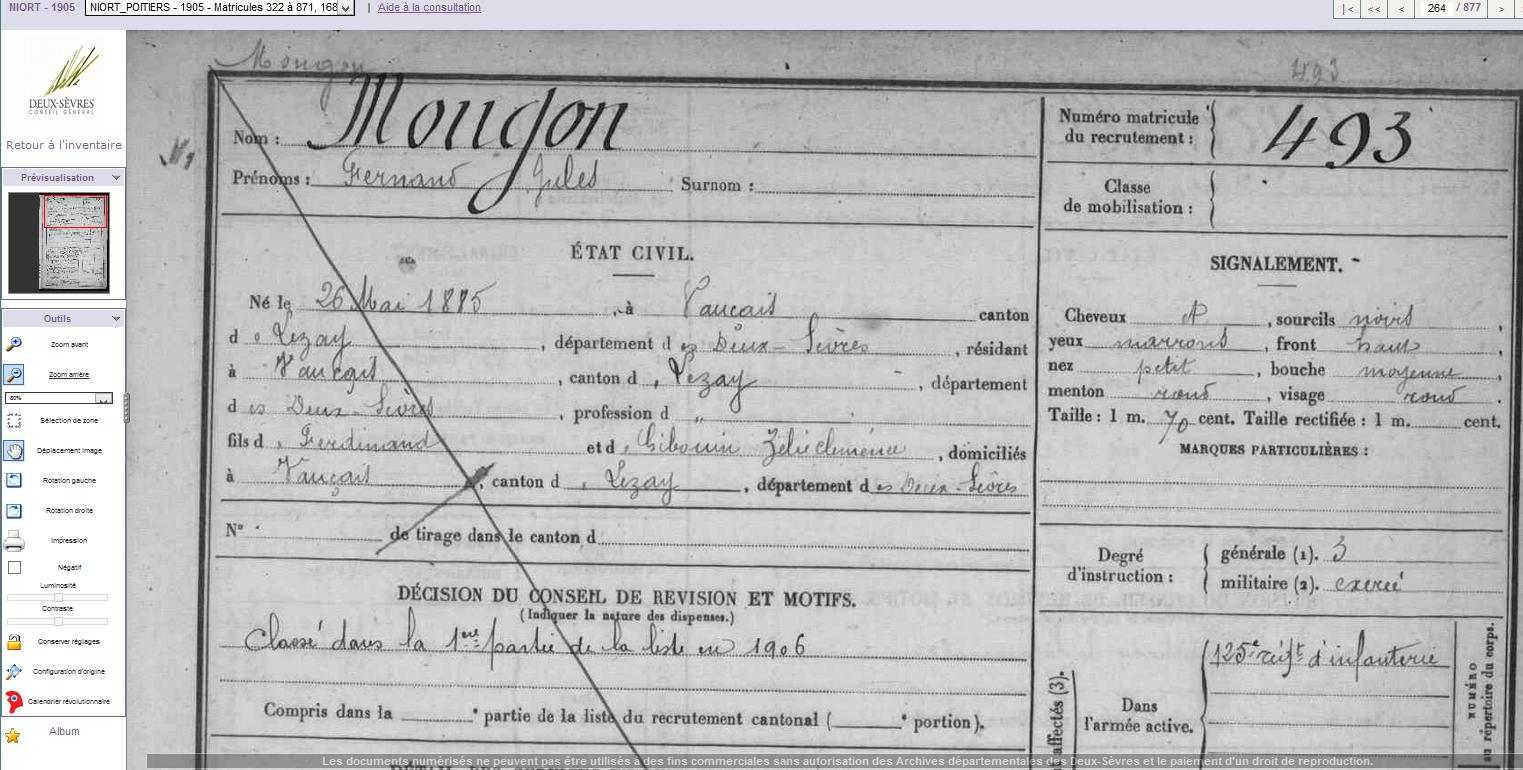 NIORT - 1905
NIORT_POITIERS - 1905 - Matricules 322 à 871, 168
| Aide à la consultation
|< << < 264 / 877 >
DEUX-SÈVRES
CONSEIL GÉNÉRAL
Retour à l'inventaire
Prévisualisation
Outils
Zoom avant
Zoom arrière
60%
Sélection de zone
Déplacement image
Rotation gauche
Rotation droite
Impression
Négatif
Luminosité
Contraste
Conserver réglages
Configuration d'origine
Calendrier révolutionnaire
Album
Mougon
493
Nom : Mougon
Prénoms : Fernand Jules Surnom :
Numéro matricule du recrutement : 493
Classe de mobilisation :
ÉTAT CIVIL.
Né le 26 Mai 1885, à Vançais canton
de Lezay, département des Deux-Sèvres, résidant
à Vançais, canton d Lezay, département
des Deux-Sèvres, profession d „
fils d Ferdinand et d Zélie, domiciliés
à Vançais, canton d Lezay, département des Deux-Sèvres
N° de tirage dans le canton d
DÉCISION DU CONSEIL DE REVISION ET MOTIFS.
(Indiquer la nature des dispenses.)
Classé dans la 1ère partie de la liste en 1906
Compris dans la ° partie de la liste du recrutement cantonal ( ° portion).
SIGNALEMENT.
Cheveux , sourcils noirs,
yeux marrons, front haut,
nez petit, bouche moyenne,
menton rond, visage rond.
Taille : 1 m. 70 cent. Taille rectifiée : 1 m. cent.
MARQUES PARTICULIÈRES :
Degré d'instruction :
générale (1). 3
militaire (2). exercé
affectés (3).
Dans l'armée active.
125e régt d'infanterie
NUMÉRO
au répertoire du corps.
Les documents numérisés ne peuvent pas être utilisés à des fins commerciales sans autorisation des Archives départementales des Deux-Sèvres et le paiement d'un droit de reproduction.